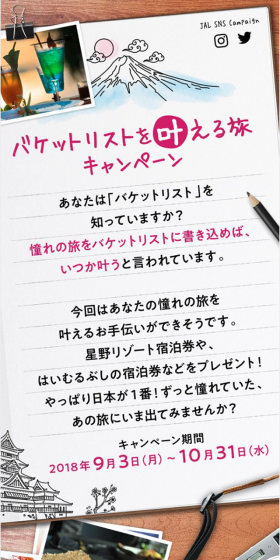 JAL SNS Campaign
バケットリストを叶える旅
キャンペーン
あなたは「バケットリスト」を
知っていますか？
憧れの旅をバケットリストに書き込めば、
いつか叶うと言われています。
今回はあなたの憧れの旅を
叶えるお手伝いができそうです。
星野リゾート宿泊券や、
はいむるぶしの宿泊券などをプレゼント！
やっぱり日本が１番！ずっと憧れていた、
あの旅にいま出てみませんか？
キャンペーン期間
2018年9月3日（月）～10月31日（水）